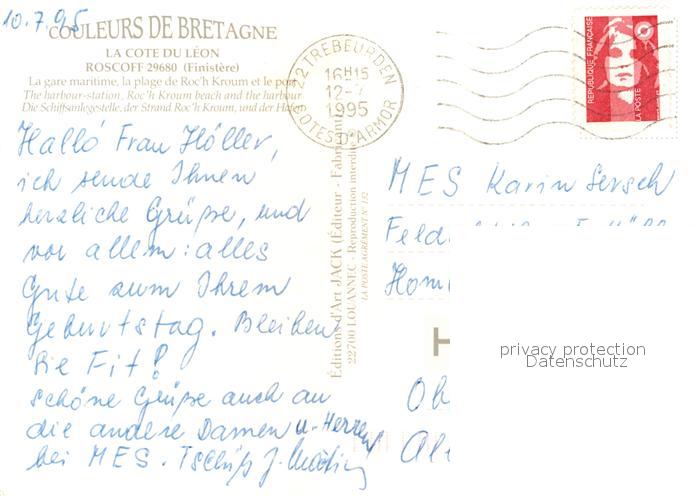 10.7.95
COULEURS DE BRETAGNE
LA COTE DU LÉON
ROSCOFF 29680 (Finistère)
La gare maritime, la plage de Roc'h Kroum et le port
The harbour-station, Roc'h Kroum beach and the harbour
Die Schiffsanlegestelle, der Strand Roc'h Kroum, und der Hafen
22 TREBEURDEN
16H15
12-7
1995
COTES D'ARMOR
REPUBLIQUE FRANÇAISE
LA POSTE
Halló Frau Höller,
ich sende Ihnen
herzliche Grüße, und
vor allem: alles
Gute zum Ihrem
Geburtstag. Bleiben
Sie Fit!
schöne Grüße auch an
die andere Damen u. Herren
bei MES. Tschüß J.
Editions d'Art JACK (Éditeur - Fabricant)
22700 LOUANNEC - Reproduction interdite
LA POSTE AGRÉMENT N° 132
MES Karin
Feld
Hom
H
Ob
Al
privacy protection
Datenschutz